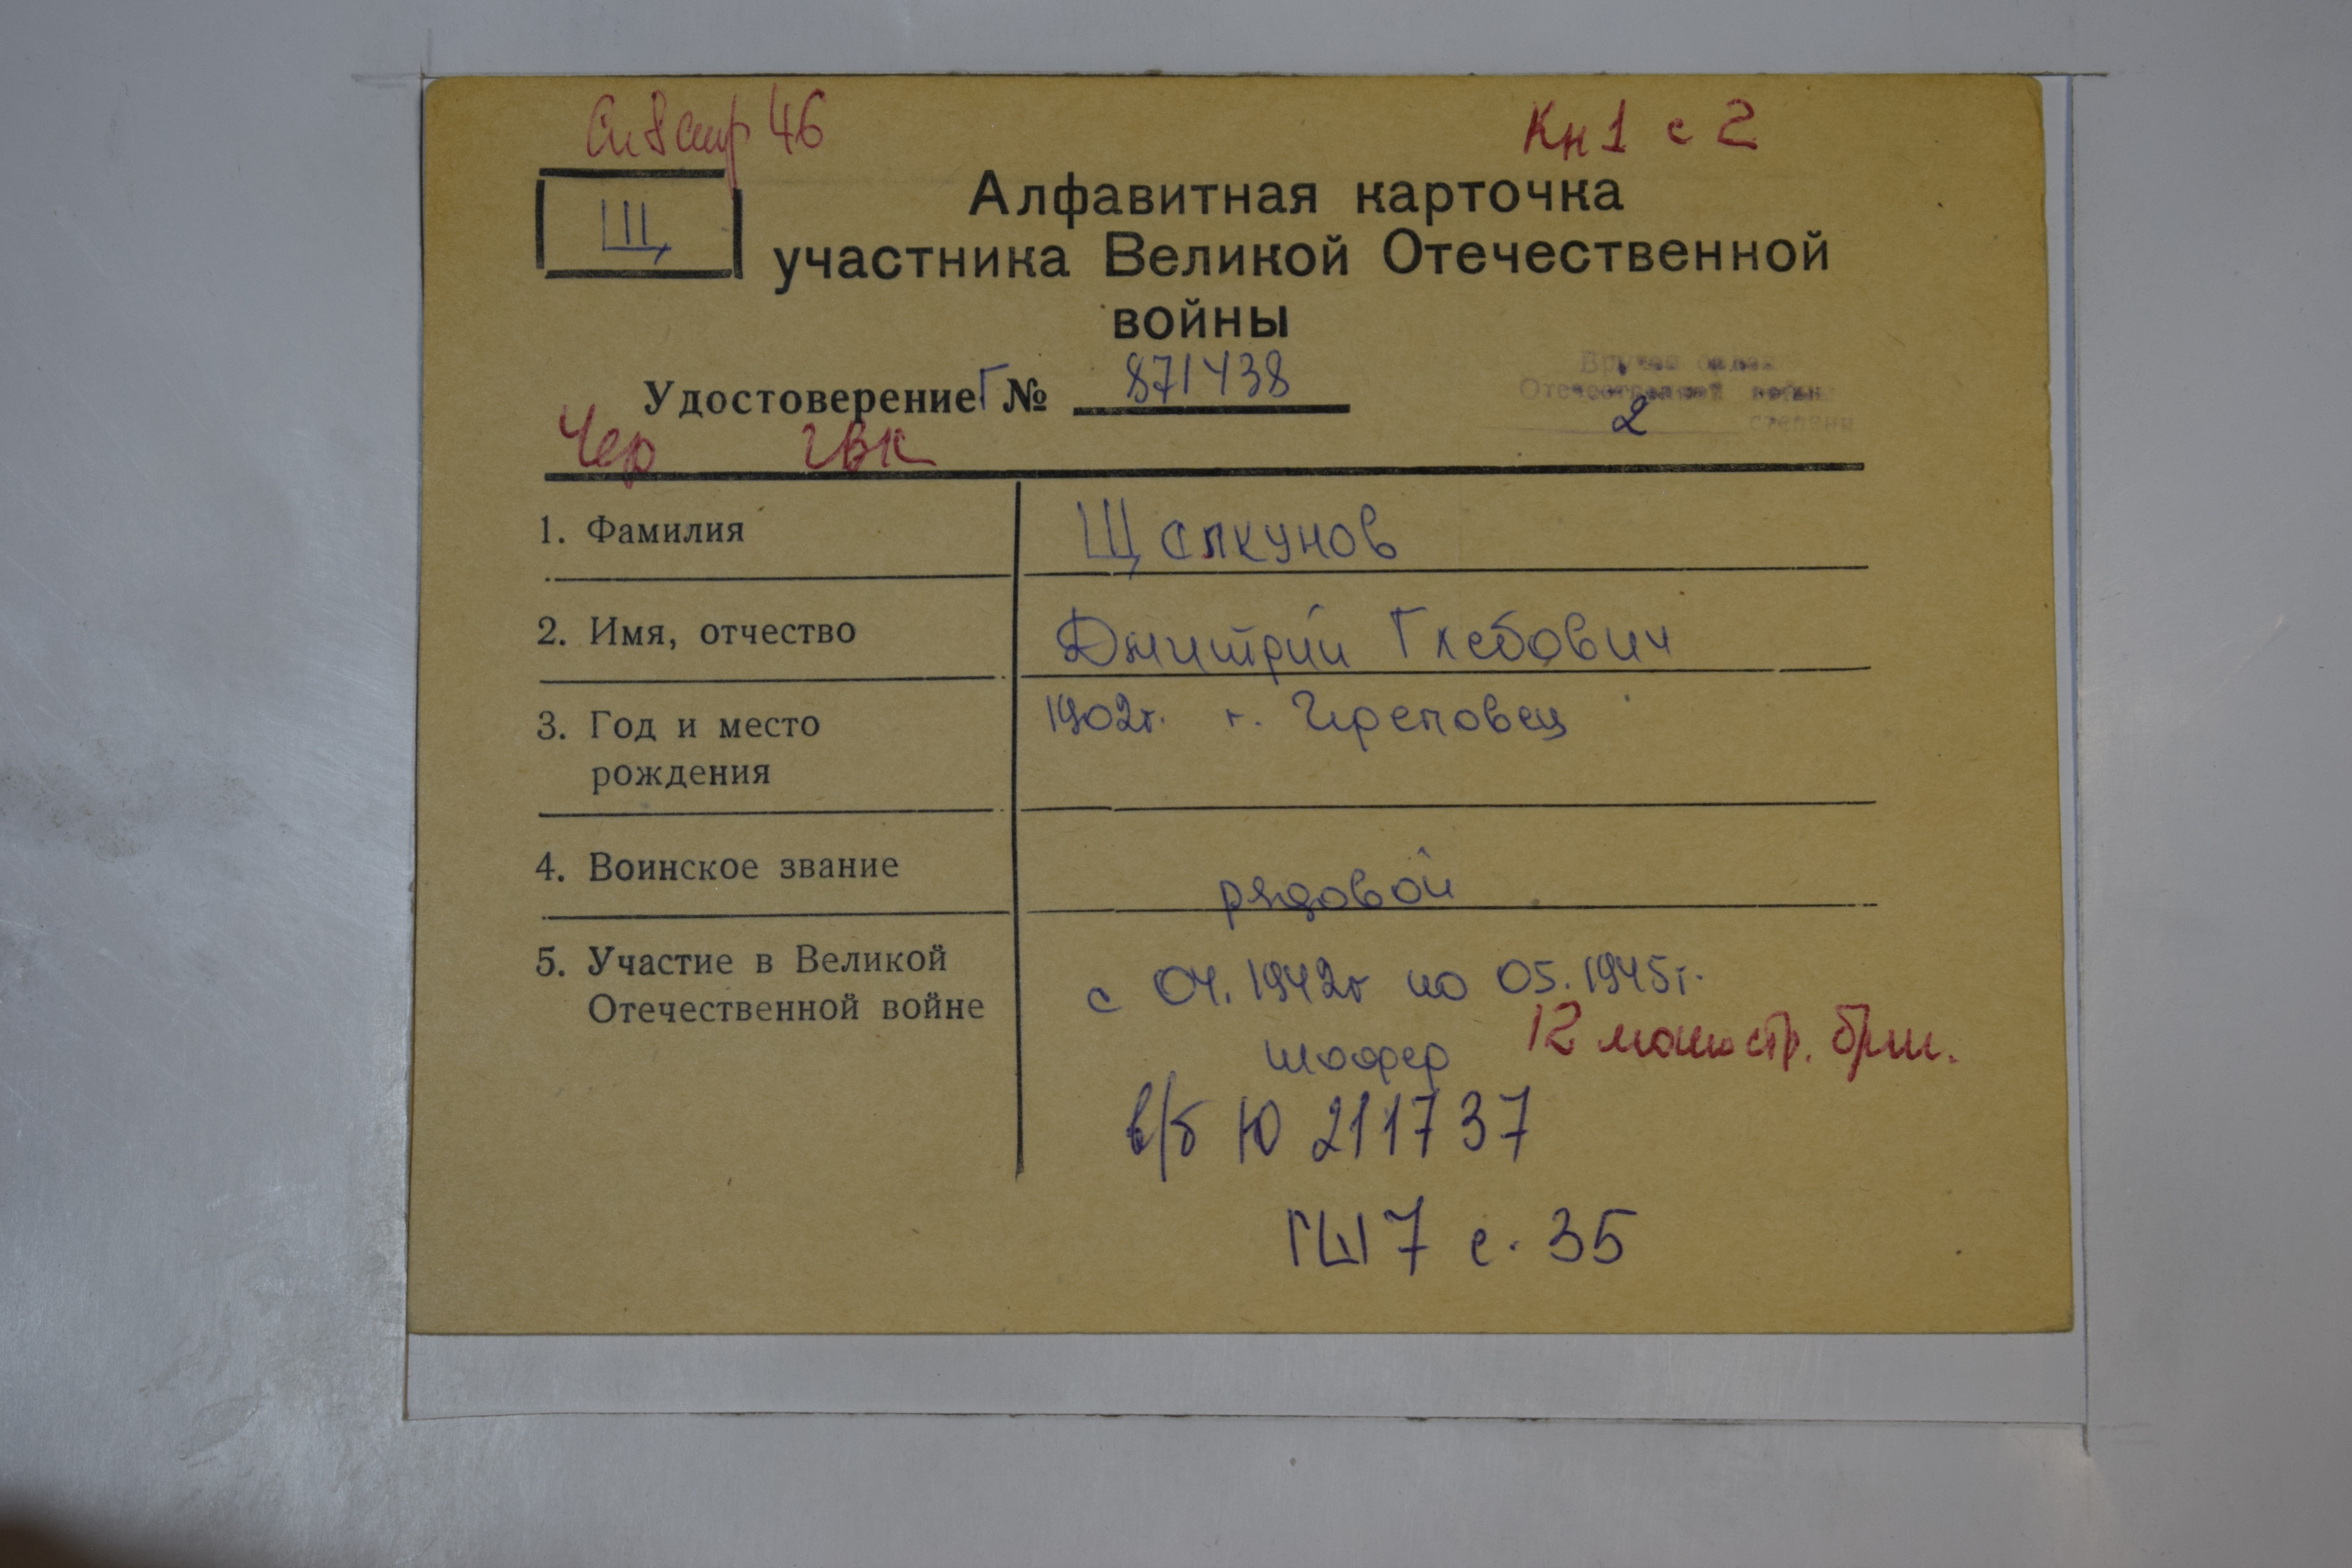 Сп 8 стр 46
Кн 1 с 2
Щ
Алфавитная карточка
участника Великой Отечественной
войны
Удостоверение Г № 871438
Вручен орден
Отечественной войны
2 степени
Чер ГВК
1. Фамилия Щелкунов
2. Имя, отчество Дмитрий Глебович
3. Год и место 1902г. г. Череповец
рождения
4. Воинское звание рядовой
5. Участие в Великой с 04.1942г по 05.1945г.
Отечественной войне
шофер 12 мотостр. бриг.
в/б Ю 211737
ГШ 7 с. 35